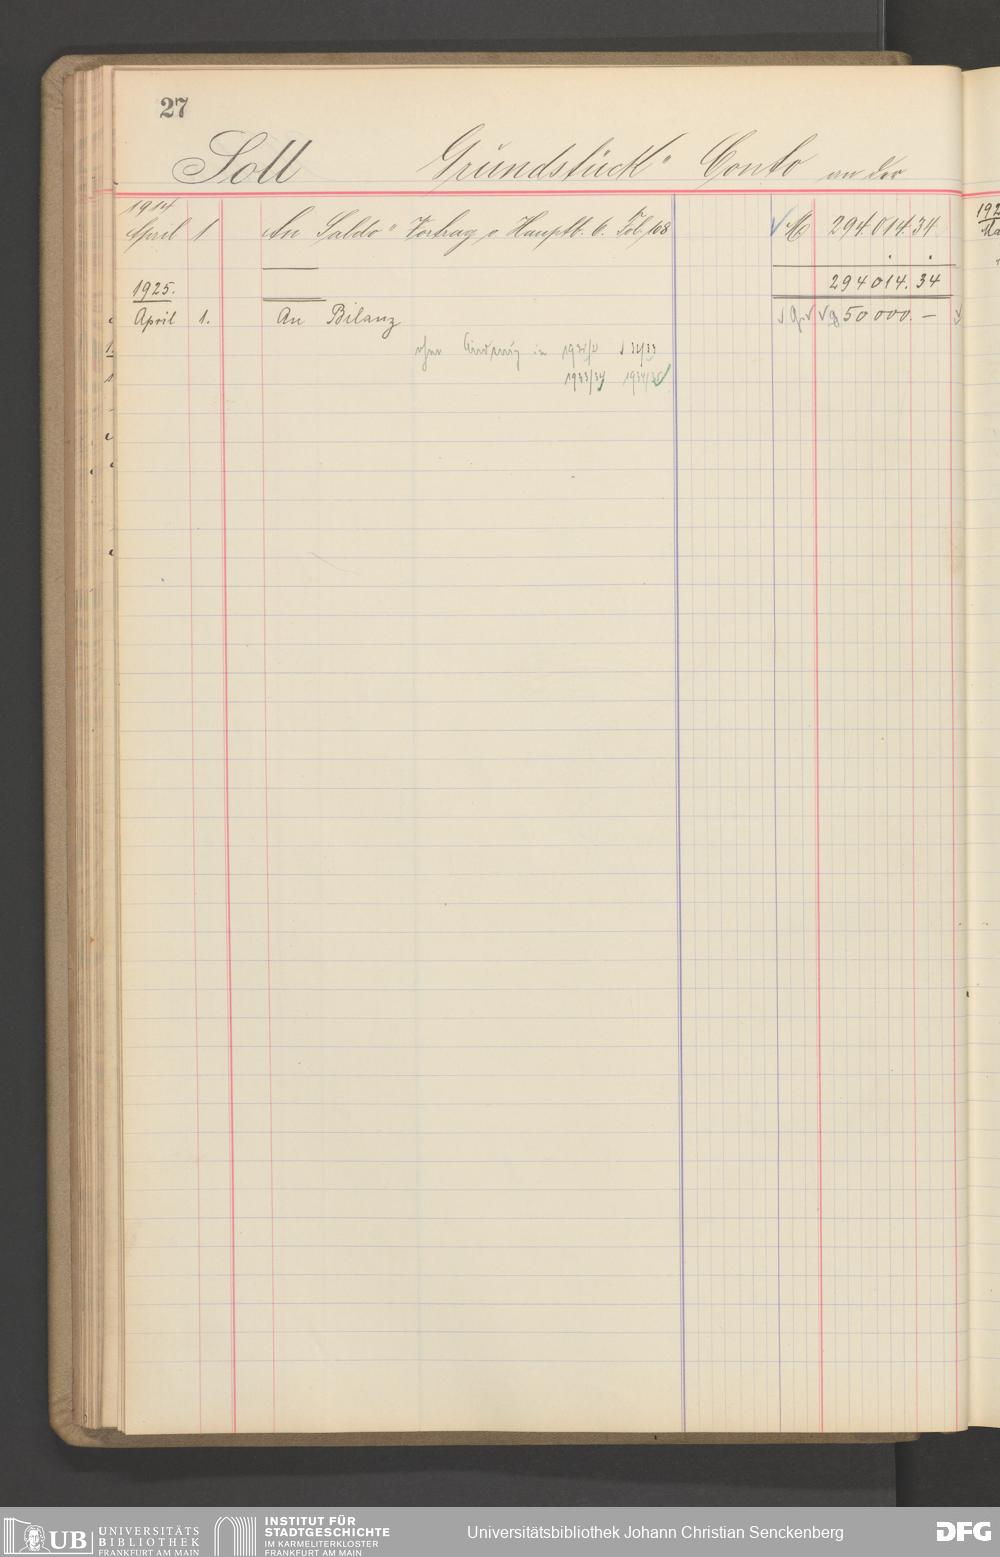 27
Soll Grundstück Conto an der
1914
April 1 An Saldo Vortrag v. Hauptb. 6. Fol. 168 M 294014.34
294014.34
1925.
April 1. An Bilanz 50000.—
ohne Änderung in 32/33
1933/34 1934/35
192
UB UNIVERSITÄTS
BIBLIOTHEK
FRANKFURT AM MAIN
INSTITUT FÜR
STADTGESCHICHTE
IM KARMELITERKLOSTER
FRANKFURT AM MAIN
Universitätsbibliothek Johann Christian Senckenberg
DFG